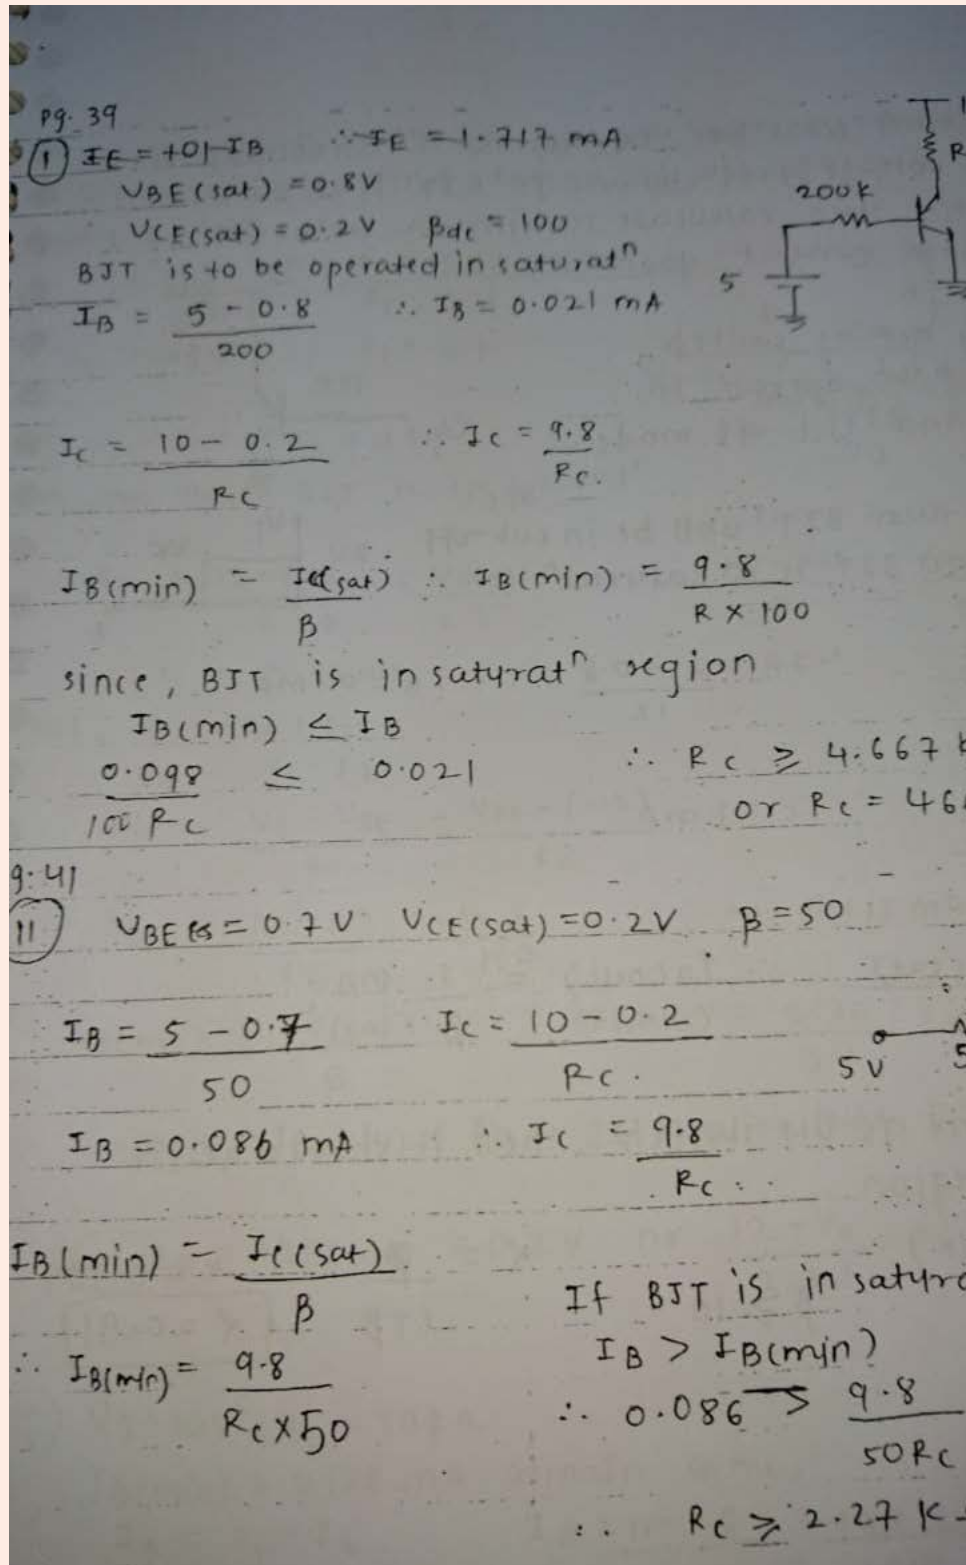 pg. 39
① IE = 101 IB ∴ IE = 1.717 mA.
VBE (sat) = 0.8V
VCE(sat) = 0.2 V βdc = 100
BJT is to be operated in saturatⁿ
IB = 5 - 0.8 / 200 ∴ IB = 0.021 mA
200k
5
R
Ic = 10 - 0.2 / RC ∴ Ic = 9.8 / Rc.
IB(min) = IC(sat) / β ∴ IB(min) = 9.8 / R × 100
since, BJT is in satyratⁿ region
IB(min) ≤ IB
0.098 / 100 RC ≤ 0.021 ∴ Rc ≥ 4.667 k
or Rc = 46
9.41
11 VBE = 0.7 V VCE(sat) = 0.2V β = 50
IB = 5 - 0.7 / 50 Ic = 10 - 0.2 / RC.
5V
5
IB = 0.086 mA ∴ Ic = 9.8 / Rc
IB(min) = IC(sat) / β
If BJT is in satyra
IB > IB(min)
∴ IB(min) = 9.8 / Rc × 50
∴ 0.086 > 9.8 / 50RC
∴ Rc ≥ 2.27 K